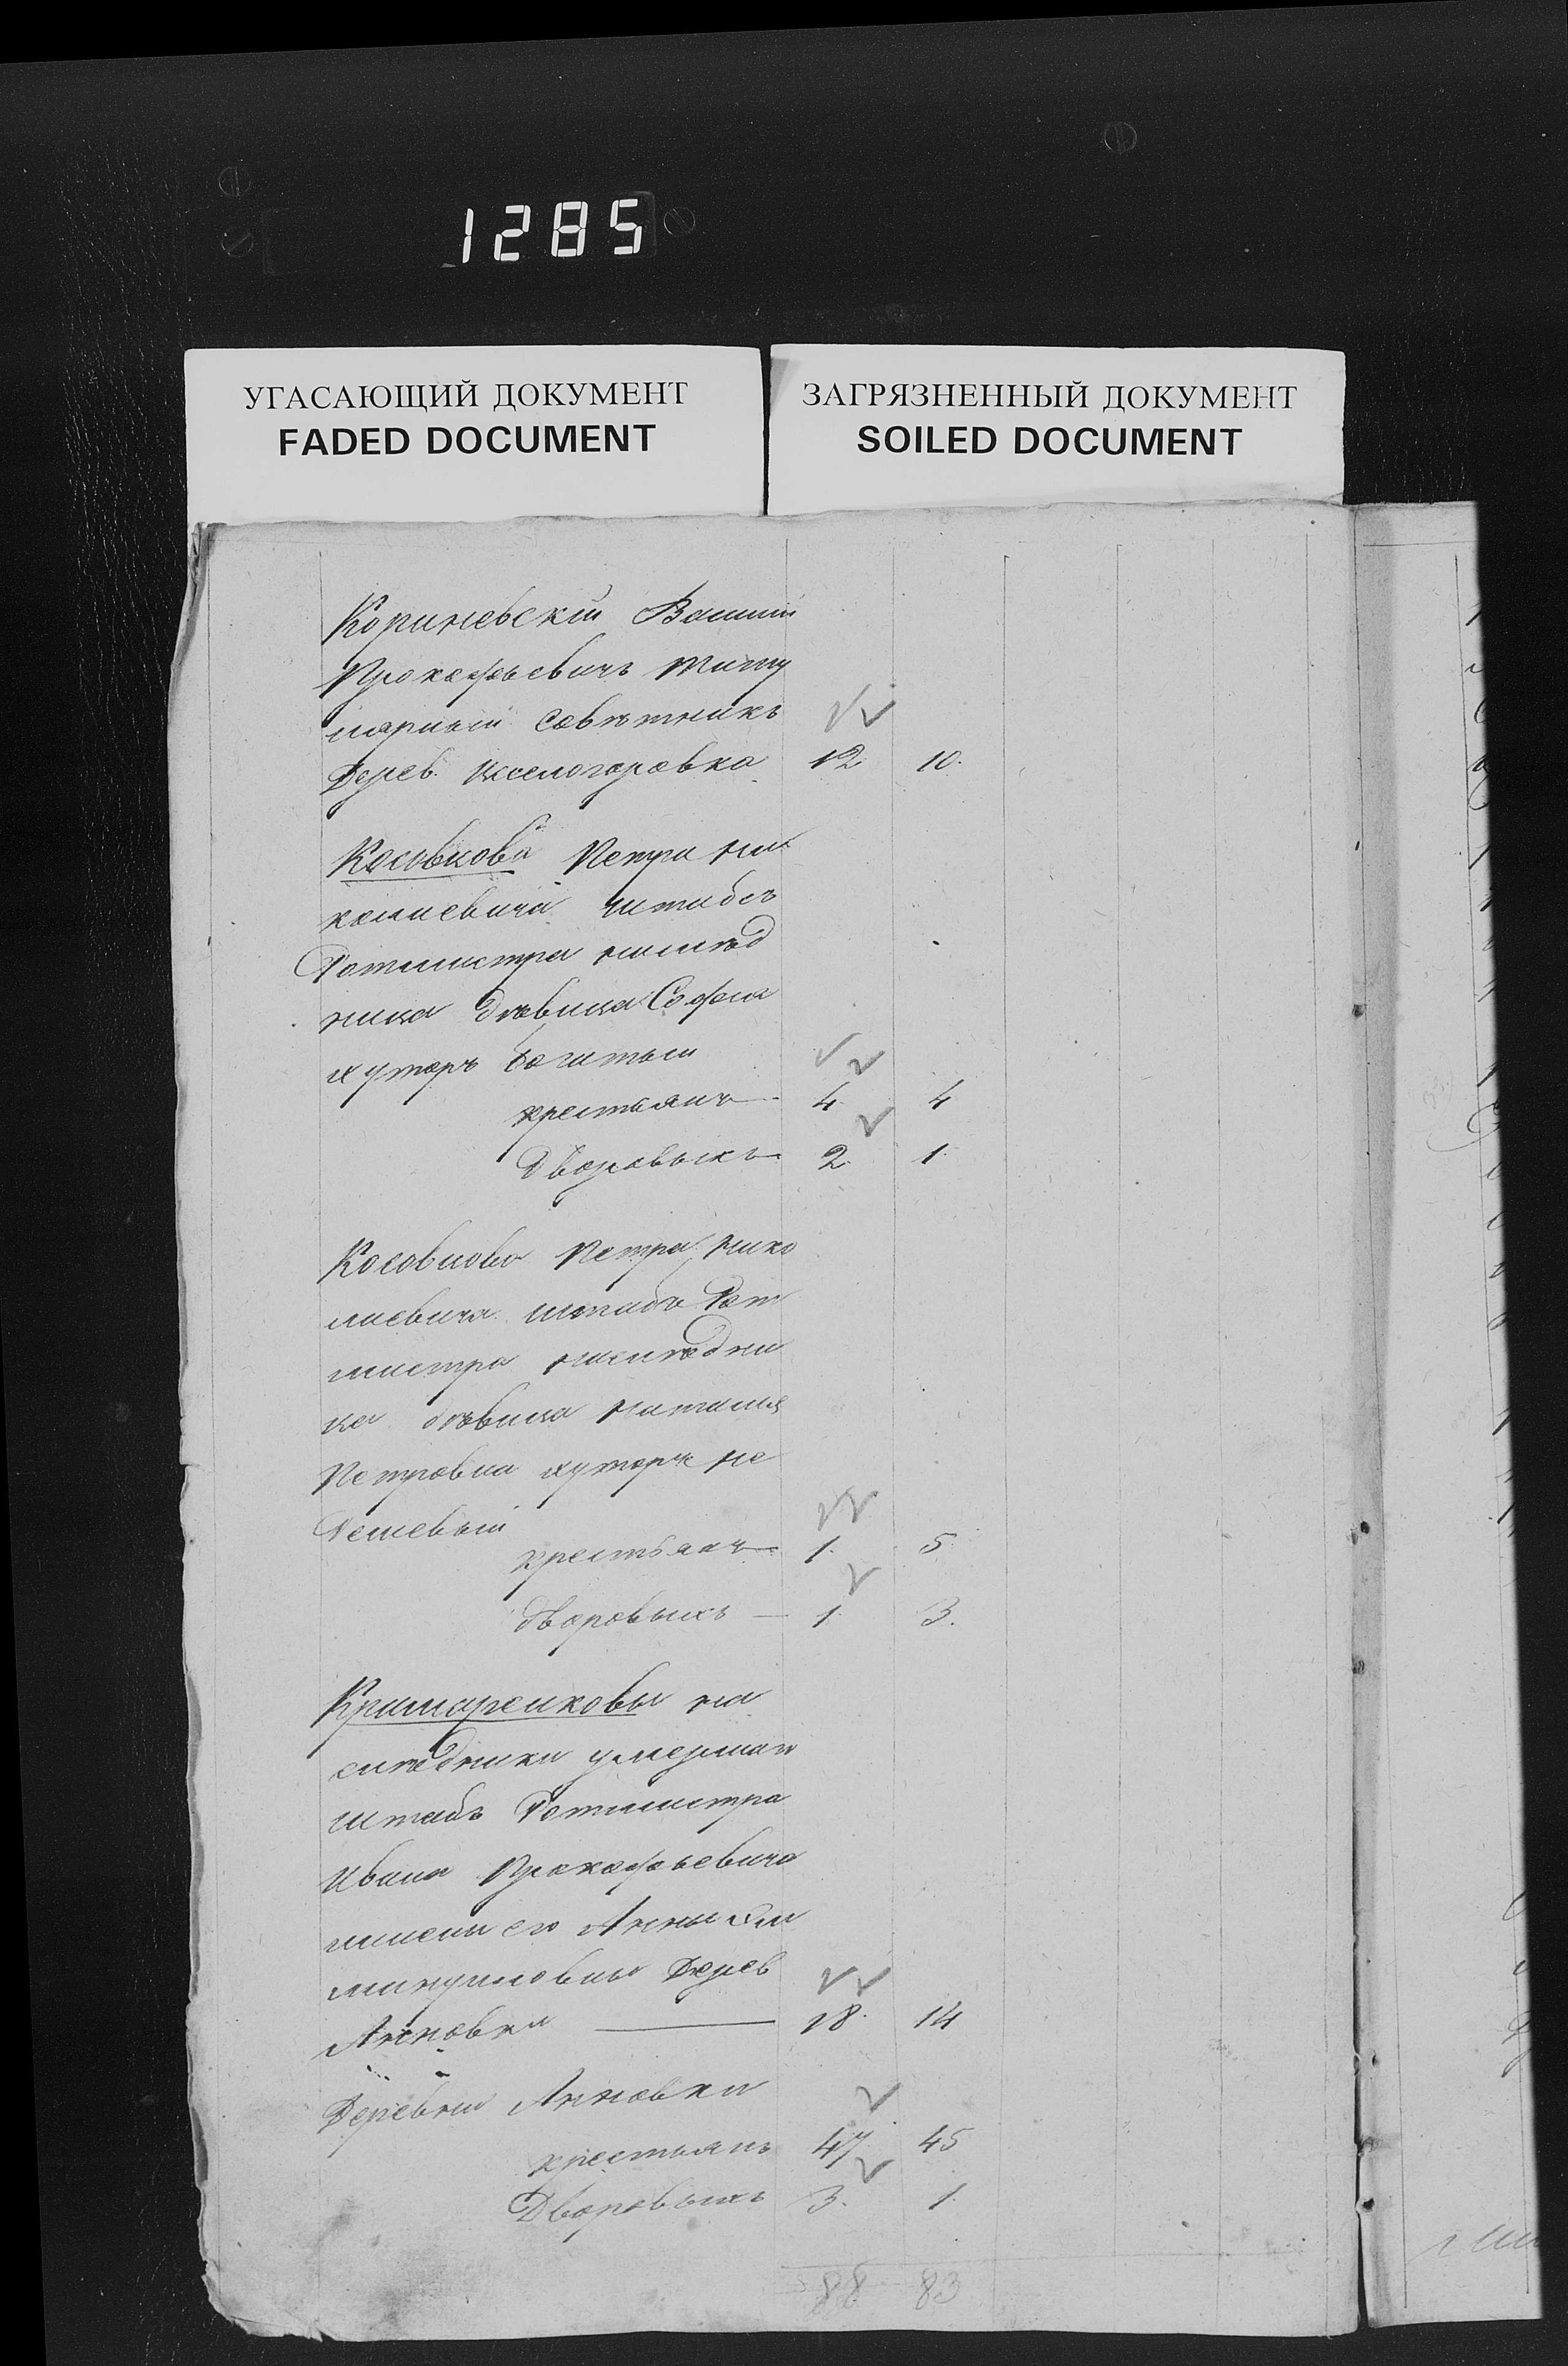 1285
УГАСАЮЩИЙ ДОКУМЕНТ
FADED DOCUMENT
ЗАГРЯЗНЕННЫЙ ДОКУМЕНТ
SOILED DOCUMENT
Кориневскій
Прокофьевичъ титу
лярный Совѣтникъ
Дерев. 12 10.
Косовцова Петра Ни
колаевича штабсъ
Ротмистра наслѣд
ница дѣвица Софія
хуторъ богатый
крестьянъ 4 4
Дворовыхъ 2 1
Косовцова Петра Нико
лаевича штабъ Рот
мистра наслѣдни
ца дѣвица Наталія
Петровна хуторъ не
Дешевый
крестьянъ 1 5
дворовыхъ — 1 3.
Кришаренковы на
слѣдники умершаго
штабъ Ротмистра
Ивана Прокофьевича
жены его Анны Эм
мануиловны Дерев
Анновка — 18. 14
Деревни Анновки
крестьянъ 47 45
Дворовыхъ 3. 1.
88 83